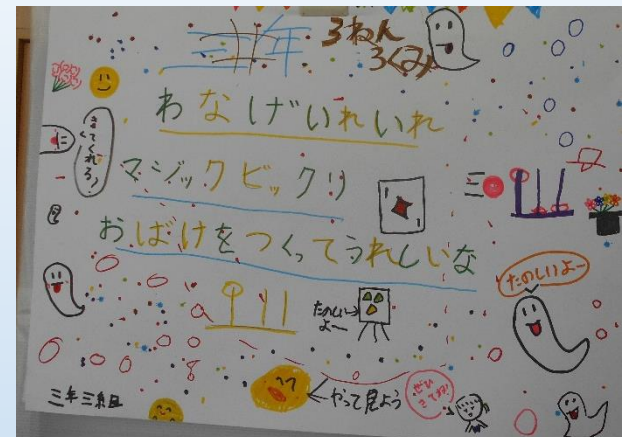 3ねん
3くみ
わなげいれいれ
きてくれろ！
マジックビックリ
おばけをつくってうれしいな
たのしいよー
たのしい
よー
やって見よう
ぜひ
きてね！
三年三組